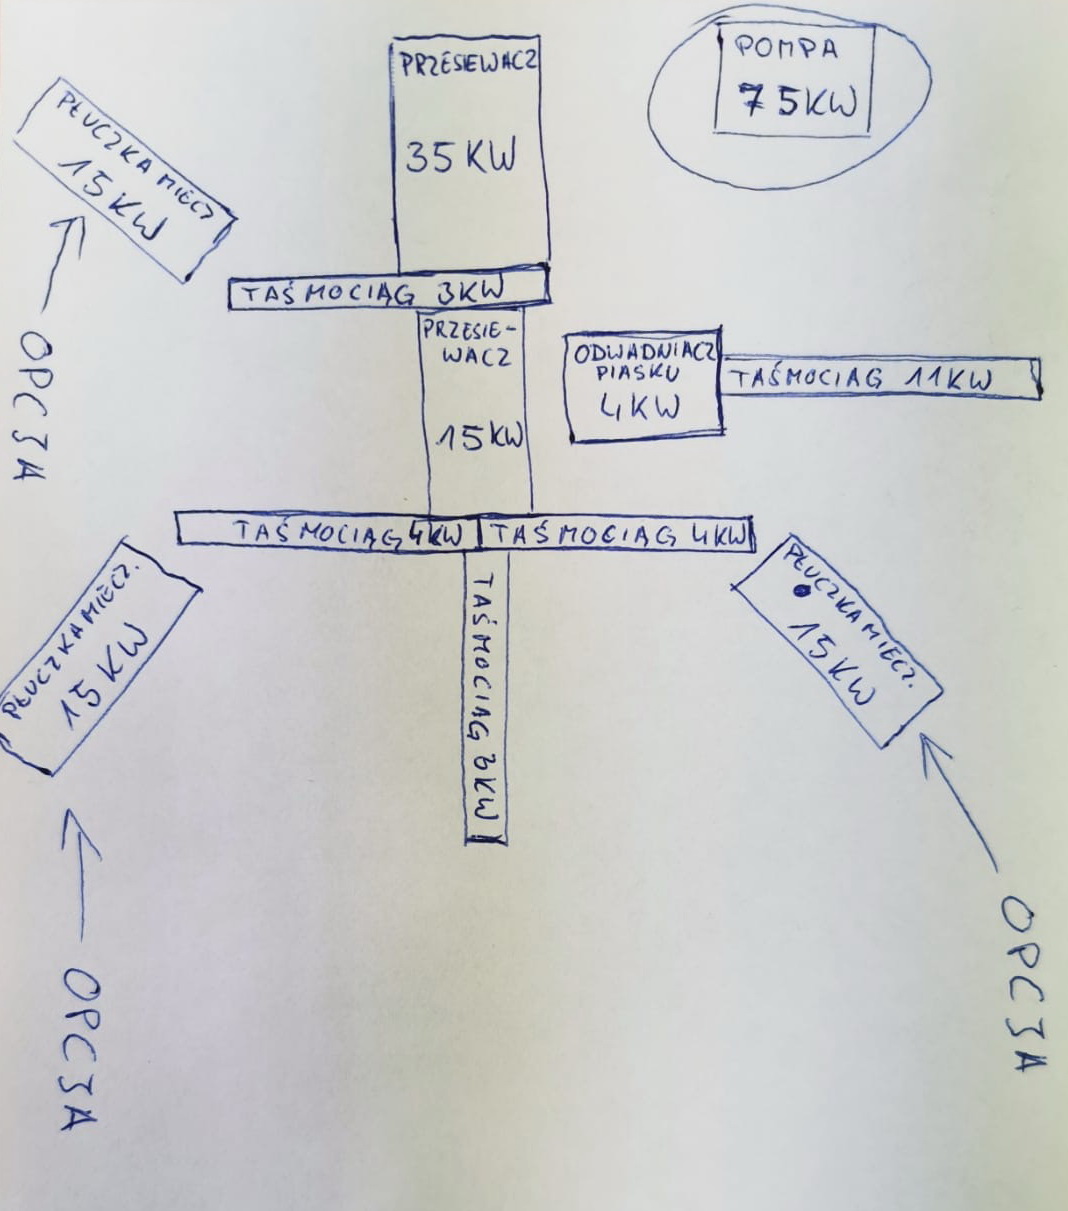 PRZESIEWACZ
35 KW
POMPA
75KW
PŁUCZKA MIECZ
15KW
OPCJA
TAŚMOCIĄG 3KW
PRZESIE-
WACZ
15KW
ODWADNIACZ
PIASKU
4KW
TAŚMOCIĄG 11KW
TAŚMOCIĄG 4KW
TAŚMOCIĄG 4KW
TAŚMOCIĄG KW
PŁUCZKA MIECZ.
15KW
OPCJA
PŁUCZKA MIECZ.
15KW
OPCJA